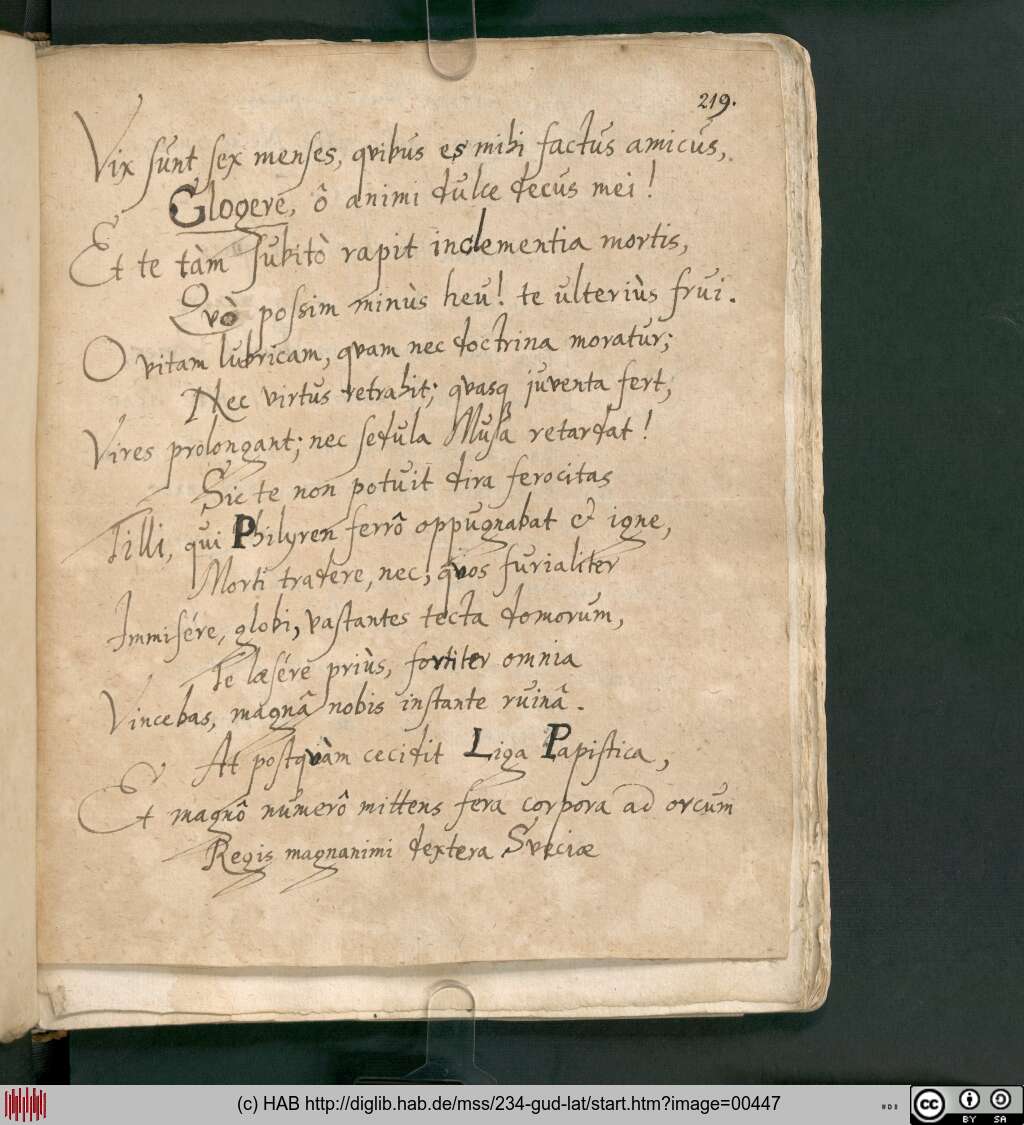 219.
Vix sunt sex menses, quibus es mihi factus amicus,
Glogere, ô animi dulce decus mei!
Et te tàm subitò rapit inclementia mortis,
Quò possim minùs heu! te ulteriùs frui.
O vitam lubricam, quam nec doctrina moratur;
Nec virtus retrahit; quasq juventa fert,
Vires prolongant; nec sedula Musa retardat!
Sic te non potuit dira ferocitas
Tilli, qui Philyren ferrô oppugnabat & igne,
Morti tradere, nec, quos furialiter
Immisére, globi, vastantes tecta domorum,
Te læsére priùs, fortiter omnia
Vincebas, magnâ nobis instante ruinâ.
At postquàm cecidit Liga Papistica,
Et magnô numerô mittens fera corpora ad orcum
Regis magnanimi dextera Sveciæ
(c) HAB http://diglib.hab.de/mss/234-gud-lat/start.htm?image=00447
cc BY SA